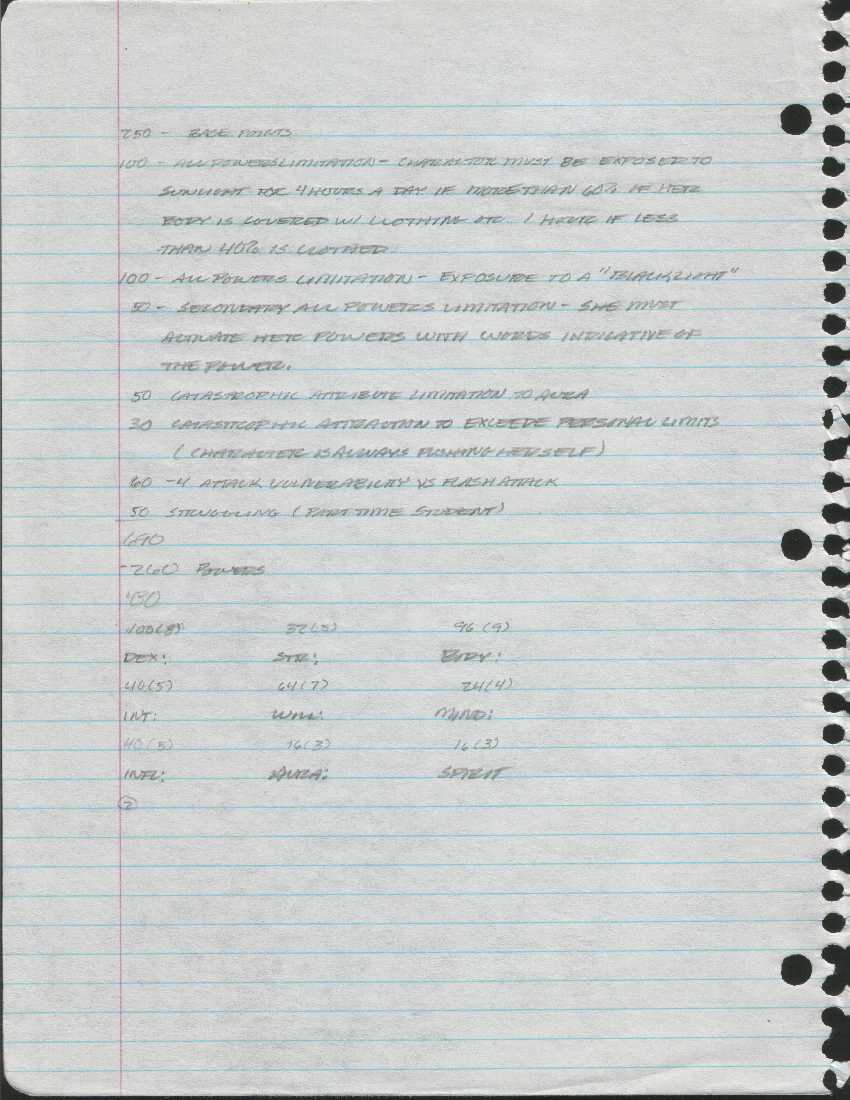 250 - BASE POINTS
100 - ALL POWERS LIMITATION - CHARACTER MUST BE EXPOSED TO
SUNLIGHT FOR 4 HOURS A DAY IF MORE THAN 60% IF HER
BODY IS COVERED W/ CLOTHING ETC 1 HOUR IF LESS
THAN 40% IS CLOTHED
100 - ALL POWERS LIMITATION - EXPOSURE TO A "BLACKLIGHT"
50 - SECONDARY ALL POWERS LIMITATION - SHE MUST
ACTIVATE HER POWERS WITH WORDS INDICATIVE OF
THE POWER.
50 CATASTROPHIC ATTRIBUTE LIMITATION TO AURA
30 CATASTROPHIC ATTRACTION TO EXCEEDE PERSONAL LIMITS
(CHARACTER IS ALWAYS PUSHING HERSELF)
60 -4 ATTACK VULNERABILITY VS FLASH ATTACK
50 STRUGGLING (PART TIME STUDENT)
690
-260 POWERS
430
100(8) 32(5) 96(9)
DEX: STR: BODY:
40(5) 64(7) 24(4)
INT: WILL: MIND:
40(5) 16(3) 16(3)
INFL: AURA: SPIRIT
2